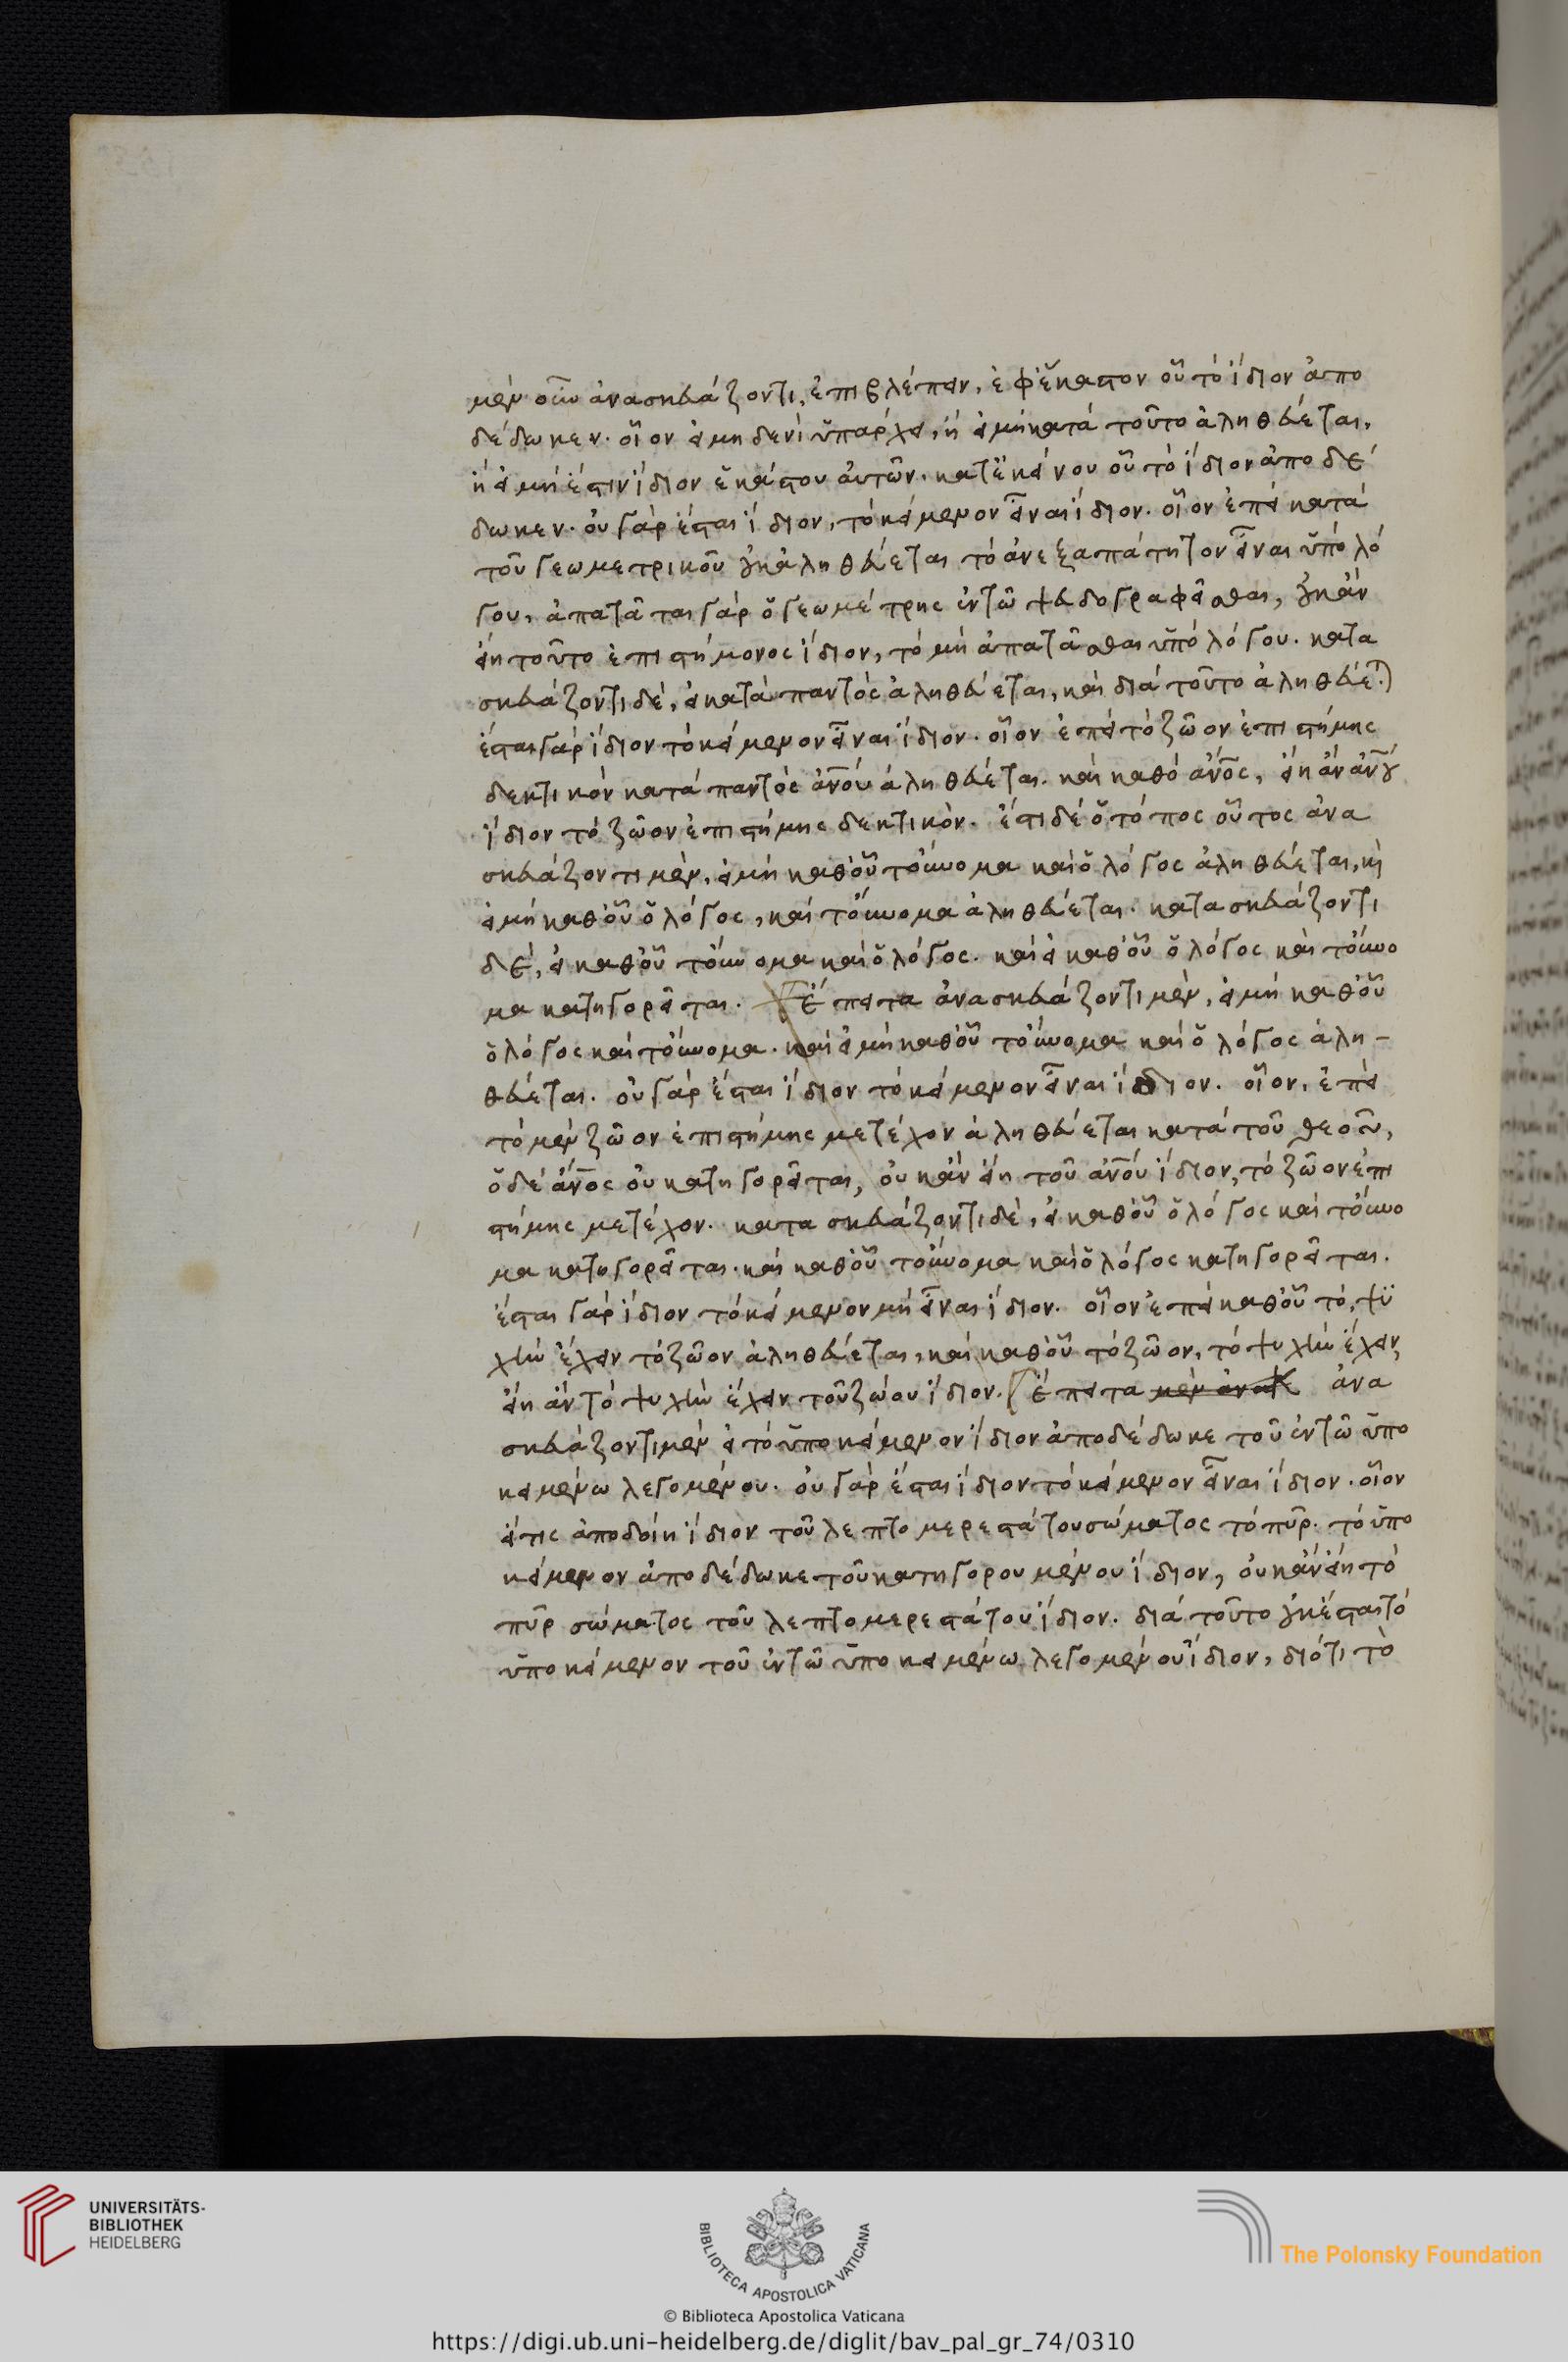 μὲν οὖν ἀνασκευάζοντι, ἐπιβλέπειν, ἐφ' ἕκαστον οὗ τὸ ἴδιον ἀπο
δέδωκεν. οἷον εἰ μηδενὶ ὑπάρχει, ἢ εἰ μὴ κατὰ τοῦτο ἀληθεύεται,
ἢ εἰ μή ἐστιν ἴδιον ἑκάστου αὐτῶν. κατ' ἐκείνου οὗ τὸ ἴδιον ἀποδέ
δωκεν. οὐ γὰρ ἔσται ἴδιον, τὸ κείμενον εἶναι ἴδιον. οἷον ἐπεὶ κατὰ
τοῦ γεωμετρικοῦ οὐκ ἀληθεύεται τὸ ἀνεξαπάτητον εἶναι ὑπὸ λό
γου, ἀπατᾶται γὰρ ὁ γεωμέτρης ἐν τῷ ψευδογραφεῖσθαι, οὐκ ἂν
εἴη τοῦτο ἐπιστήμονος ἴδιον, τὸ μὴ ἀπατᾶσθαι ὑπὸ λόγου. κατα
σκευάζοντι δὲ, εἰ κατὰ παντὸς ἀληθεύεται, καὶ διὰ τοῦτο ἀληθεύετ(αι)
ἔσται γὰρ ἴδιον τὸ κείμενον εἶναι ἴδιον. οἷον ἐπεὶ τὸ ζῷον ἐπιστήμης
δεκτικὸν κατὰ παντὸς ἀνοῦ ἀληθεύεται. καὶ καθὸ ἄνος, εἴη ἂν ἀνοῦ
ἴδιον τὸ ζῷον ἐπιστήμης δεκτικόν. ἔστι δὲ ὁ τόπος οὗτος ἀνα
σκευάζοντι μὲν, εἰ μὴ καθ' οὗ τοὔνομα καὶ ὁ λόγος ἀληθεύεται, κὶ
εἰ μὴ καθ' οὗ ὁ λόγος, καὶ τοὔνομα ἀληθεύεται. κατασκευάζοντι
δὲ, εἰ καθ' οὗ τοὔνομα καὶ ὁ λόγος. καὶ εἰ καθ' οὗ ὁ λόγος καὶ τοὔνο
μα κατηγορεῖται. ἔπειτα ἀνασκευάζοντι μὲν, εἰ μὴ καθ' οὗ
ὁ λόγος καὶ τοὔνομα. καὶ εἰ μὴ καθ' οὗ τοὔνομα καὶ ὁ λόγος ἀλη-
θεύεται. οὐ γὰρ ἔσται ἴδιον τὸ κείμενον εἶναι ἴδιον. οἷον, ἐπεὶ
τὸ μὲν ζῷον ἐπιστήμης μετέχον ἀληθεύεται κατὰ τοῦ θεοῦ,
ὁ δὲ ἄνος οὐ κατηγορεῖται, οὐκ ἂν εἴη τοῦ ἀνοῦ ἴδιον, τὸ ζῷον ἐπι
στήμης μετέχον. κατασκευάζοντι δὲ, εἰ καθ' οὗ ὁ λόγος καὶ τοὔνο
μα κατηγορεῖται. καὶ καθ' οὗ τοὔνομα καὶ ὁ λόγος κατηγορεῖται.
ἔσται γὰρ ἴδιον τὸ κείμενον μὴ εἶναι ἴδιον. οἷον ἐπεὶ καθ' οὗ τὸ, ψυ
χὴν ἔχειν τὸ ζῷον ἀληθεύεται, καὶ καθ' οὗ τὸ ζῷον, τὸ ψυχὴν ἔχειν,
εἴη ἂν τὸ ψυχὴν ἔχειν τοῦ ζώου ἴδιον. ἔπειτα μὲν ἀνασκ ἀνα
σκευάζοντι μὲν εἰ τὸ ὑποκείμενον ἴδιον ἀποδέδωκε τοῦ ἐν τῷ ὑπο
κειμένω λεγομένου. οὐ γὰρ ἔσται ἴδιον τὸ κείμενον εἶναι ἴδιον. οἷον
εἴ τις ἀποδοίη ἴδιον τοῦ λεπτομερεστάτου σώματος τὸ πῦρ. τὸ ὑπο
κείμενον ἀποδέδωκε τοῦ κατηγορουμένου ἴδιον, οὐκ ἂν εἴη τὸ
πῦρ σώματος τοῦ λεπτομερεστάτου ἴδιον. διὰ τοῦτο οὐκ ἔσται τὸ
ὑποκείμενον τοῦ ἐν τῷ ὑποκειμένω λεγομένου ἴδιον, διότι τὸ
UNIVERSITÄTS-
BIBLIOTHEK
HEIDELBERG
BIBLIOTECA APOSTOLICA VATICANA
The Polonsky Foundation
© Biblioteca Apostolica Vaticana
https://digi.ub.uni-heidelberg.de/diglit/bav_pal_gr_74/0310